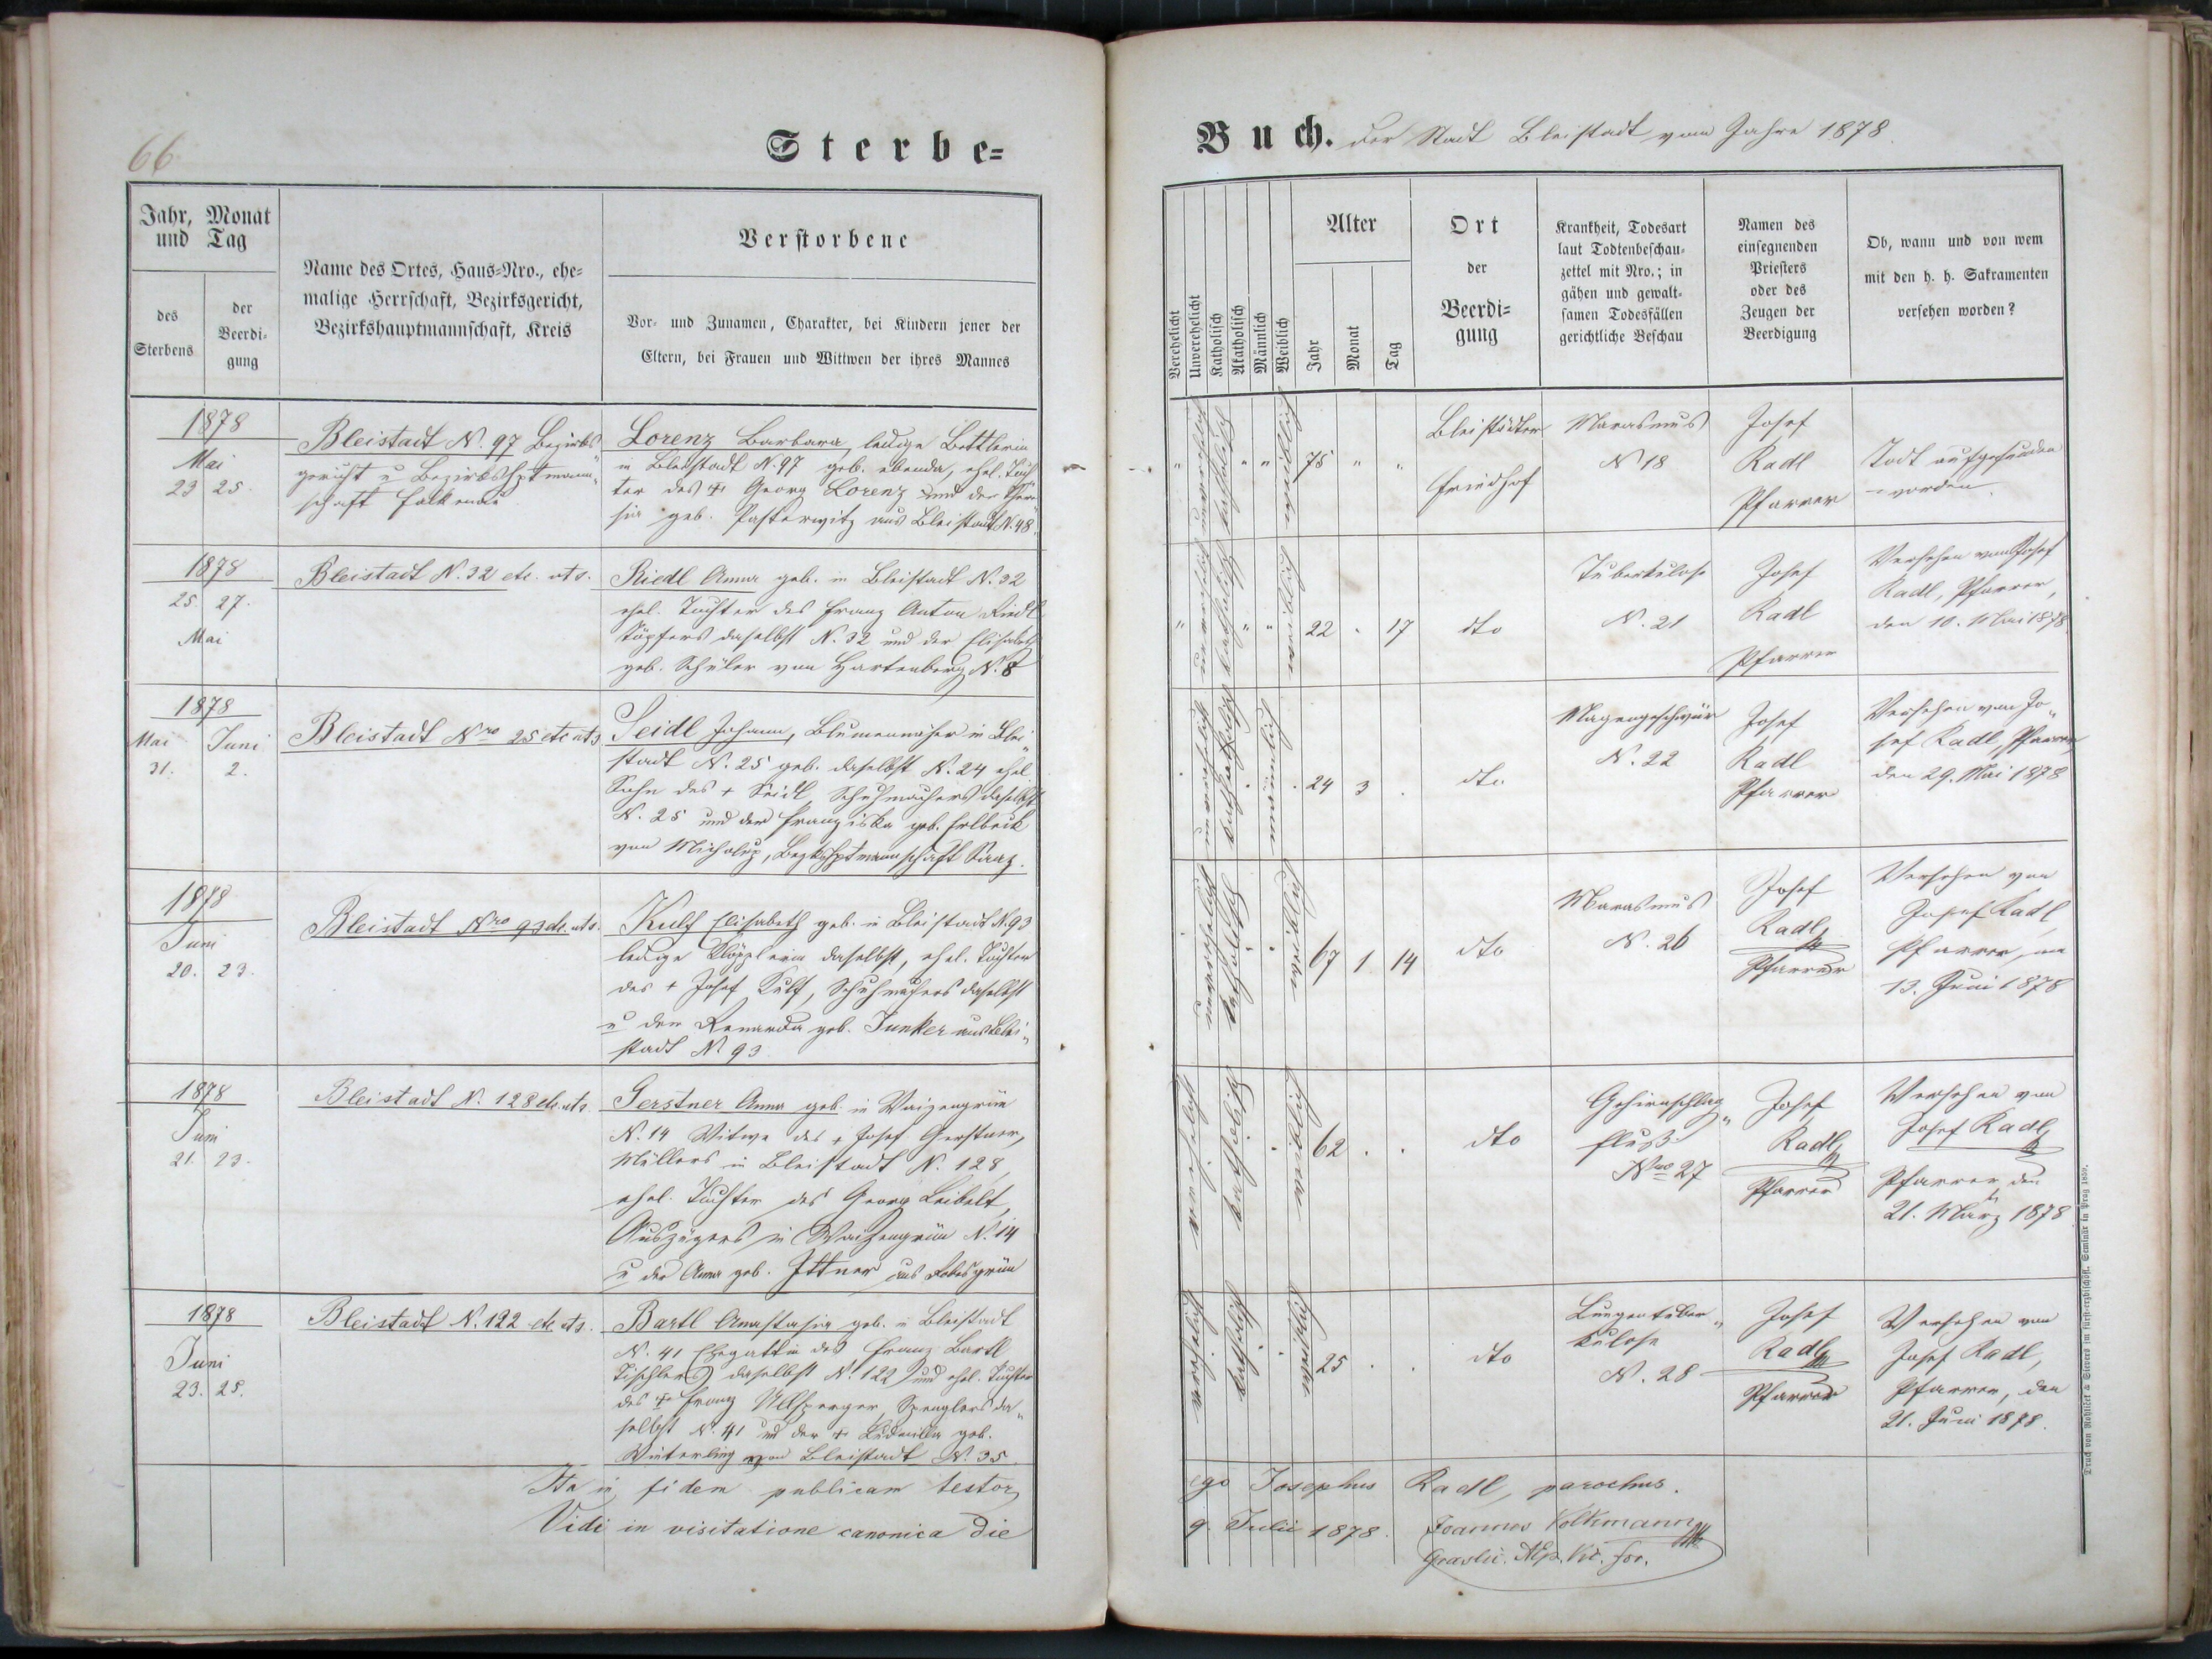 66
Sterbe=
Jahr, Monat
und Tag
des
Sterbens
der
Beerdi=
gung
Name des Ortes, Haus=Nro., ehe=
malige Herrschaft, Bezirksgericht,
Bezirkshauptmannschaft, Kreis
Verstorbene
Vor= und Zunamen, Charakter, bei Kindern jener der
Eltern, bei Frauen und Wittwen der ihres Mannes
1878
Mai
23 25.
Bleistadt N. 97 Bezirks
gericht u Bezirkshptmann„
schaft Falkenau
Lorenz Barbara, ledige Bettlerin
in Bleistadt N. 97 geb. ebenda, ehel. Toch„
ter des + Georg Lorenz und der There„
sia geb. aus Bleistadt N. 48.
1878
25. 27.
Mai
Bleistadt N. 32 etc. uts.
Riedl Anna geb. in Bleistadt N. 32
ehel. Tochter des Franz Anton Riedl
Töpfers daselbst N. 32 und der Elisabeth
geb. Schüler von Hartenberg N. 8
1878
Mai Juni
31. 2.
Bleistadt Nro 25 etc uts
Seidl Johann, in Blei„
stadt N. 25 geb. daselbst N. 24 ehel.
Sohn des + Seidl Schuhmachers daselbst
N. 25 und der Franziska geb.
von Micholup, Bezkshptmannschaft Saaz.
1878
Juni
20. 23.
Bleistadt Nro 93 etc. uts.
Kulf Elisabeth geb. in Bleistadt N. 93
ledige Klöpplerin daselbst, ehel. Tochter
des + Josef Kulf, Schuhmachers daselbst
u der geb. Junker aus Blei„
stadt N 93.
1878
Juni
21. 23.
Bleistadt N. 128 etc. uts.
Gerstner Anna geb. in Waizengrün
N. 14 Witwe des + Josef Gerstner,
Müllers in Bleistadt N. 128,
ehel. Tochter des Georg Leibelt,
Auszügers in Waizengrün N. 14
u der Anna geb. Ittner aus Robesgrün
1878
Juni
23. 25.
Bleistadt N. 122 etc. uts.
Bartl Anastasia geb. in Bleistadt
N. 41 Ehegattin des Franz Bartl
Tischlers daselbst N. 122 und ehel. Tochter
des + Franz Ullsperger, Spenglers da„
selbst N. 41 und der + Ludmilla geb.
Winterling von Bleistadt N. 35.
Ita in fidem publicam testor
Vidi in visitatione canonica die
Buch. der Stadt Bleistadt vom Jahre 1878.
Verehelicht
Unverehelicht
Katholisch
Akatholisch
Männlich
Weiblich
Alter
Jahr
Monat
Tag
Ort
der
Beerdi=
gung
Krankheit, Todesart
laut Todtenbeschau=
zettel mit Nro.; in
gähen und gewalt=
samen Todesfällen
gerichtliche Beschau
Namen des
einsegnenden
Priesters
oder des
Zeugen der
Beerdigung
Ob, wann und von wem
mit den h. h. Sakramenten
versehen worden?
" unverehelicht katholisch " " weiblich 75 " "
Bleistädter
Friedhof
Marasmus
N 18
Josef
Radl
Pfarrer
Todt aufgefunden
worden.
" unverehelicht katholisch " " weiblich 22 . 17
dto
Tuberkulose
N. 21
Josef
Radl
Pfarrer
Versehen von Josef
Radl, Pfarrer,
den 10. Mai 1878
. unverehelicht katholisch . männlich . 24 3 .
dto
Magengeschwür
N. 22
Josef
Radl
Pfarrer
Versehen von Jo„
sef Radl, Pfarrer
den 29. Mai 1878
unverehelicht katholisch . weiblich 67 1 14
dto
Marasmus
N. 26
Josef
Radl
Pfarrer
Versehen von
Josef Radl
Pfarrer, am
13. Juni 1878
verehelicht katholisch . weiblich 62 . .
dto
Gehirnschlag„
fluß.
Nro 27
Josef
Radl
Pfarrer
Versehen von
Josef Radl
Pfarrer, den
21. März 1878
verehelicht katholisch . weiblich 25 . .
dto
Lungentuber„
kulose
N. 28
Josef
Radl
Pfarrer
Versehen von
Josef Radl,
Pfarrer, den
21. Juni 1878.
ego Josephus Radl, parochus.
9. Julii 1878. Joannes Volkmann
Graslic. Aep. Vic. for.
Druck von Rohliček & Sievers im fürst-erzbischöfl. Seminär in Prag 1859.